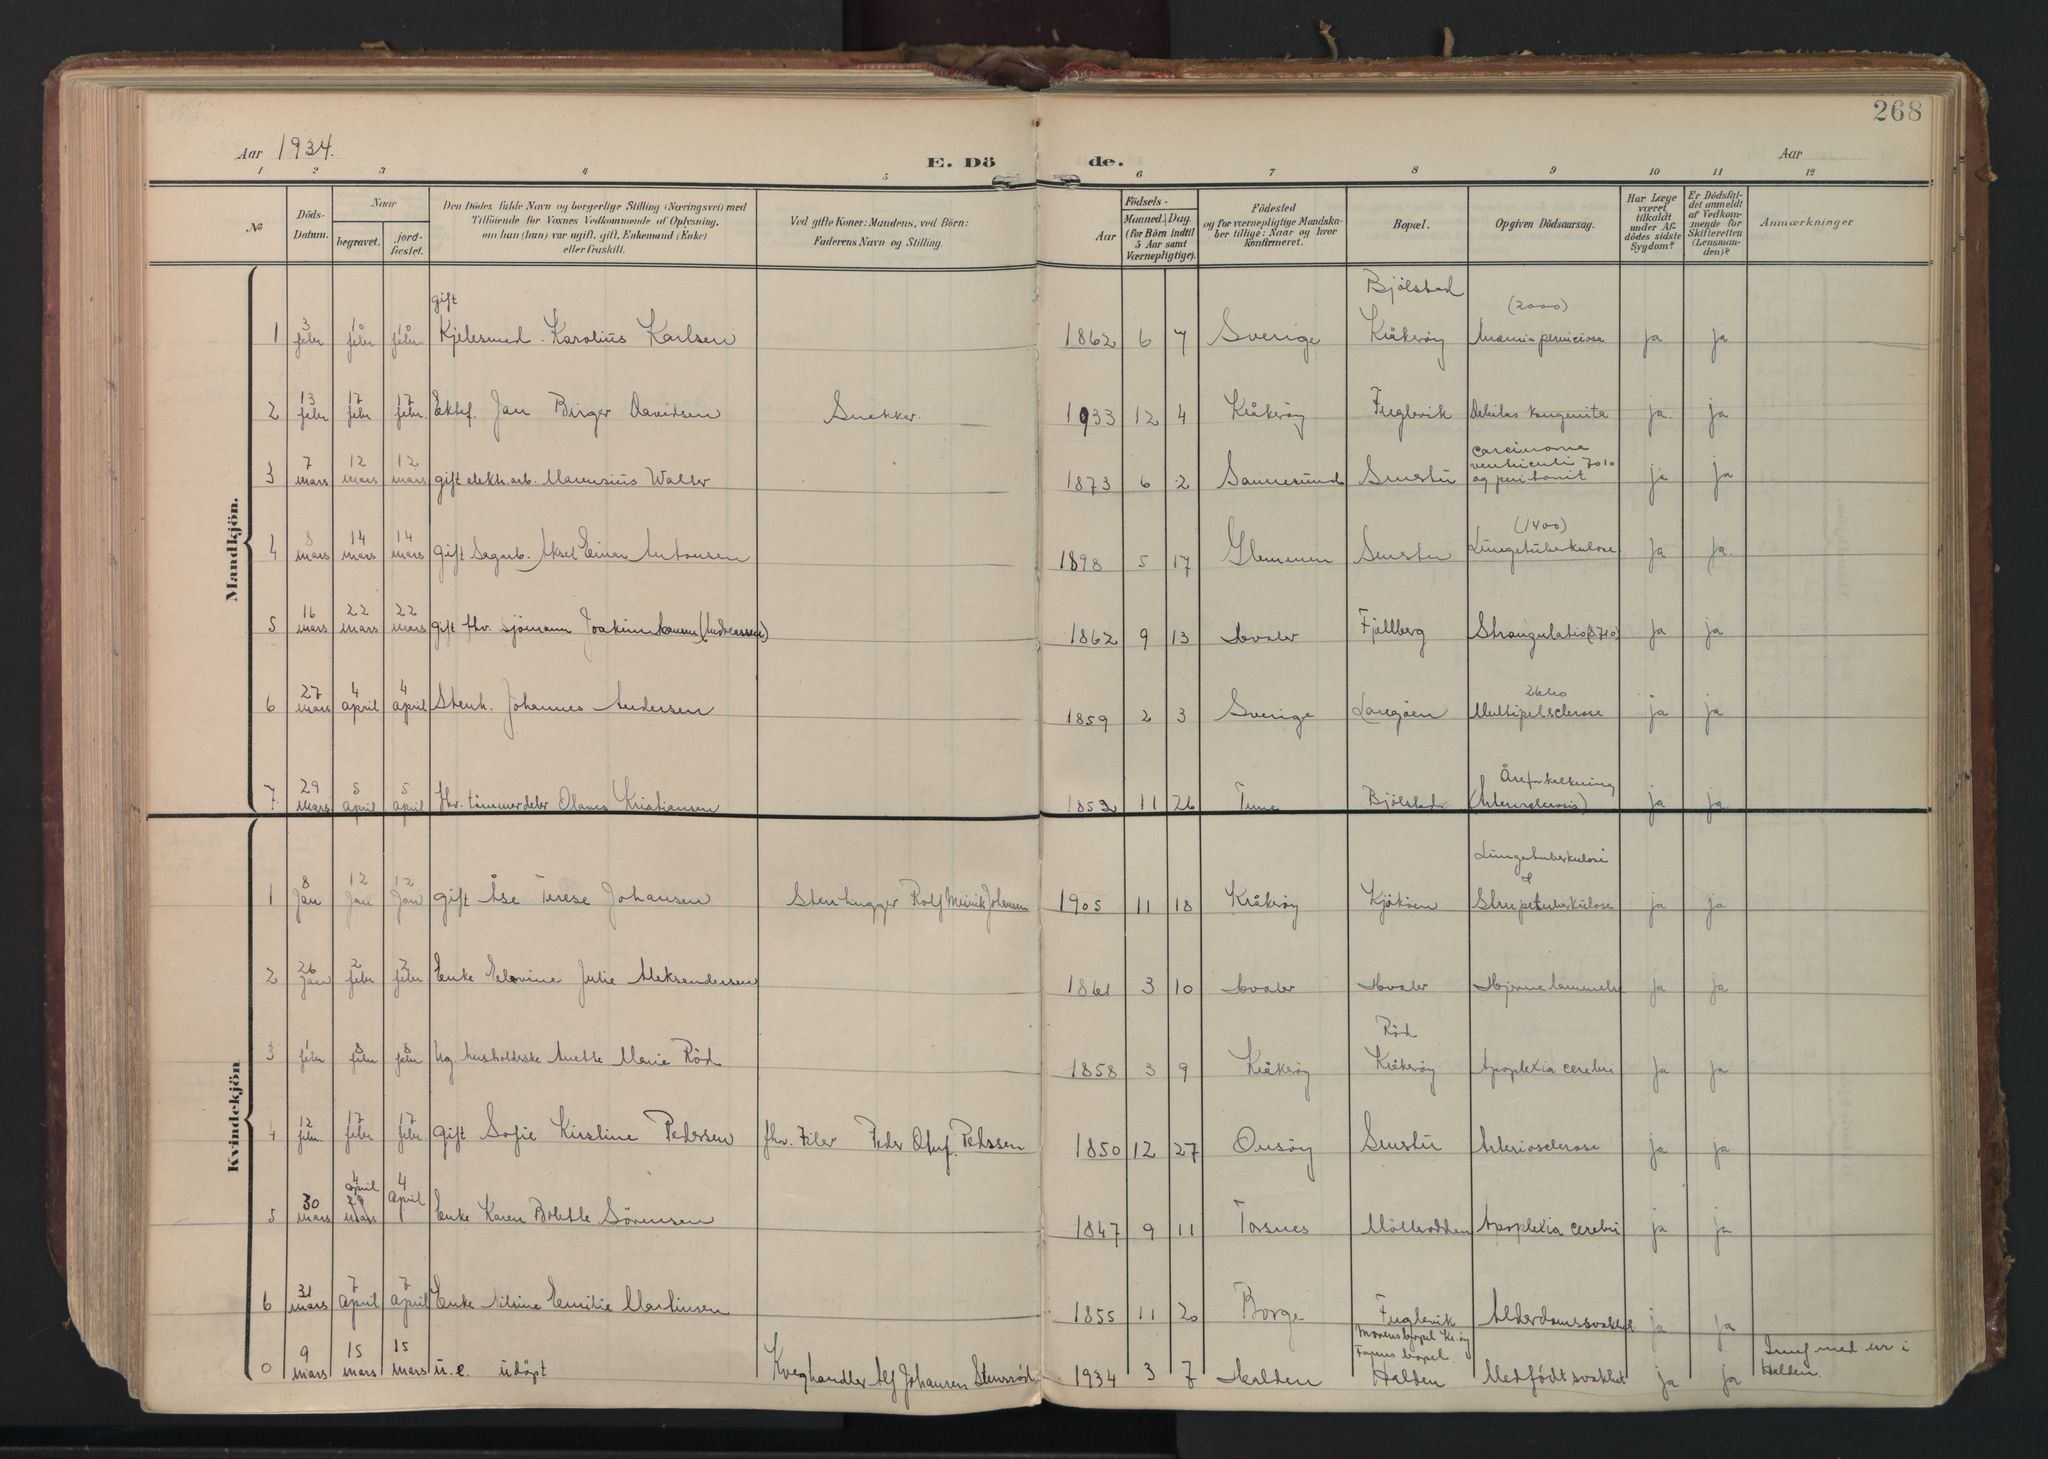 268
Aar 1934.
E. Dö de.
Aar
1 2 3 4 5 6 7 8 9 10 11 12
No
Döds-Datum.
Naar
begravet.
jord-fæstet.
Den Dödes fulde Navn og borgerlige Stilling (Næringsvei) med
Tilföiende for Voxnes Vedkommende af Oplysning,
om han (hun) var ugift, gift, Enkemand (Enke)
eller fraskilt.
Ved gifte Koner: Mandens, ved Börn:
Faderens Navn og Stilling.
Födsels-
Aar
Maaned. Dag.
(for Börn indtil
5 Aar samt
Værnepligtige).
Födested
og for værnepligtige Mandska-
ber tillige: Naar og hvor
konfirmeret.
Bopæl.
Opgiven Dödsaarsag.
Har Læge
været
tilkaldt
under Af-
dödes sidste
Sygdom?
Er Dödsfal-
det anmeldt
af Vedkom-
mende for
Skifteretten
(Lensman-
den)?
Anmærkninger
Mandkjön.
gift Bjölstad (2000)
1 3 febr 7 febr febr. Kjelesmed. Karolius Karlsen 1862 6 7 Sverige Kråkeröy Anæmia perniciosa ja ja
2 13 febr 17 febr 17 febr. Ektef. Jan Birger Davidsen Snekker. 1933 12 4 Kråkeröy Fuglevik Debilas kongenita ja. ja
carcinoma
3 7 mars 12 mars 12 mars gift elektr.arb. Marensius Walter 1873 6 2 Sannesund Smertu ventriculi 7010 ja ja
og peritonit
(1400)
4 8 mars 14 mars 14 mars gift Sagarb. Aksel Einar Antonsen 1898 5 17 Glemmen Smertu Lungetuberkulose ja ja.
5 16 mars 22 mars 22 mars gift fhv. sjömann Joakim Hansen (Andreassen) 1862 9 13 Hvaler Fjellberg Strangulatio (8710) ja ja
6 27 mars 4 april 4 april Stenh. Johannes Andersen 1859 2 3 Sverige Langöen Multipelsclerose ja ja
Åreforkalkning
7 29 mars 5 april 5 april fhv. tömmerdeler Olaves Kristiansen 1852 11 26 Tune Bjölstad (Arteriosclerosis) ja ja
Kvindekjön
Lungetuberkulose
1 8 Jan 12 Jan 12 Jan gift Åse Terese Johansen Stenhugger Rolf Meinik Johansen 1905 11 18 Kråkeröy Kjököen & Strupetuberkulose ja ja
2 26 Jan 2 febr 2 febr Enke Elovine Julie Aleksandersen 1861 3 10 Hvaler Hvaler Hjernelammelse ja ja
Röd
3 1 febr 8 febr 8 febr ug husholderske Anette Marie Röd 1858 3 9 Kråkeröy Kråkeröy Apoplexia cerebri ja ja
4 12 febr. 17 febr 17 febr. gift Sofie Kirstine Pedersen fhv. Filer Peder Oluf. Pedssen 1850 12 27 Onsöy Smertu Arteriosclerose ja ja
4 april
5 30 mars 29 mars 4 april Enke Karen Bolette Sörensen 1847 9 11 Torsnes Möllerodden Apoplexia cerebri ja ja
6 31 mars 7 april 7 april Enke Nilsine Emilie Martinsen 1855 11 20 Borge Fuglevik Alderdomssvakhet ja ja
Morens bopel Kr.öy
Farens bopel
0 9 mars 15 mars 15 mars u.e. udöpt Kveghandler Alf Johansen Stenssröd 1934 3 7 Halden Halden Medfödt svakhet ja ja med ur i
Halden.